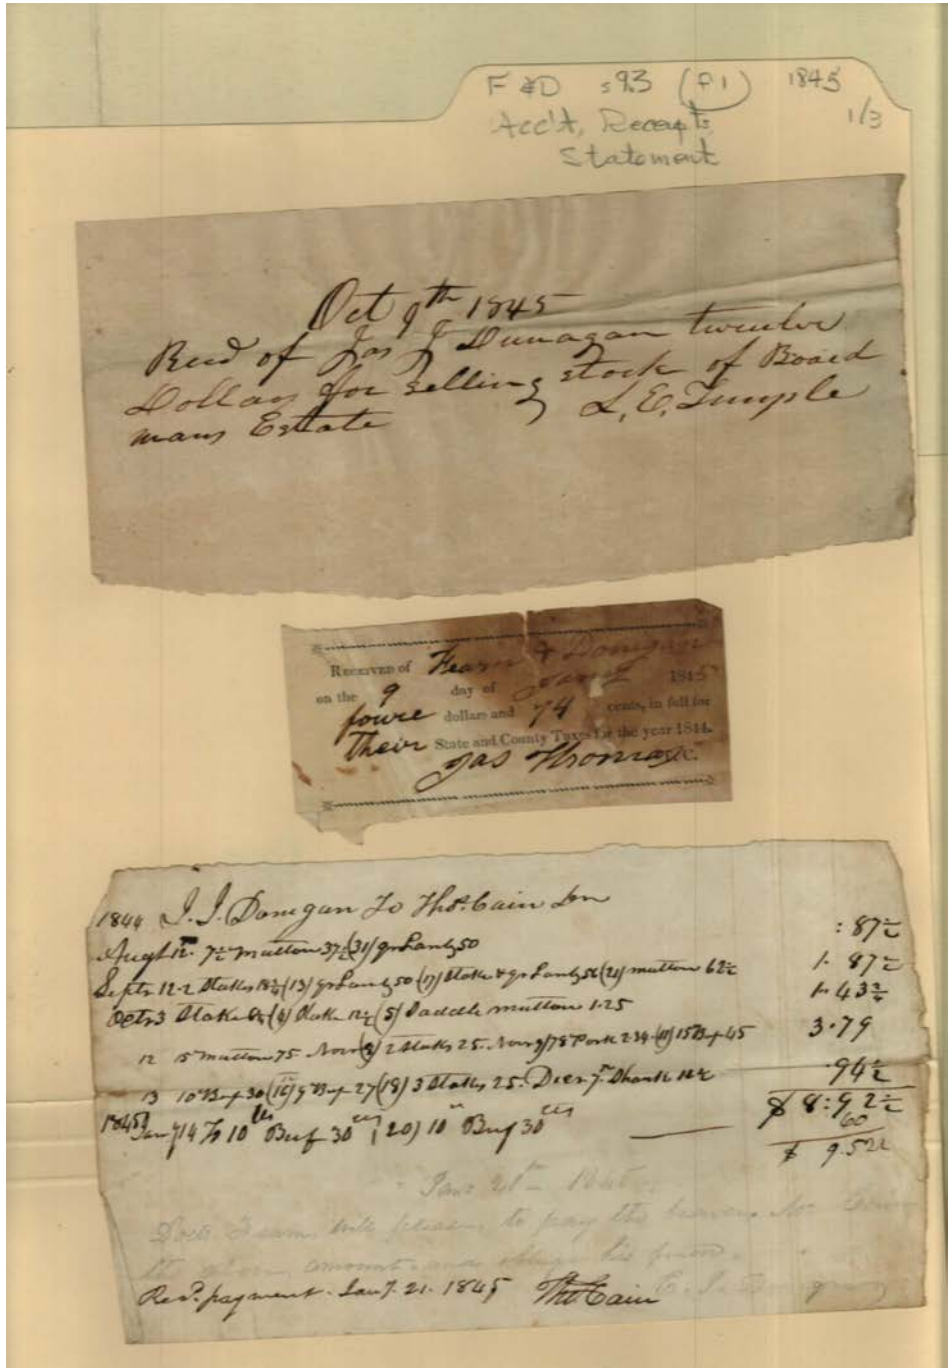 F & D s 9.3 (f1) 1845
1/3
Acc'ts, Receipts,
Statement
Oct 9th 1845
Recd of Jas J Dunagan twenlve
Dollars for selling stock of Board
mans Estate L. E. Temple
RECEIVED of Fearn & Donegan
on the 9 day of Jany 1845
foure dollars and 74 cents, in full for
Their State and County Taxes for the year 1844.
Jas Thomas T.C.
1844 J. J. Donegan To Thos. Cain Dr
Augt 12. 7½ mutton 37½ (31) qr Lamb 50 : 87½
Septr 12-2 Stakes 18¾ (13) qr Lamb 50 (17) Stake & qr Lamb 56 (21) mutton 62½ 1. 87½
Octr 3 Stake (4) Stake 12½ (5) Saddle mutton 1.25 1.43¾
12 15 mutton 75 Novr 2 Staks 25. Novr 78 Pork 2.34 (11) 15 Bf 45 3.79
13 10 Bf 30 (16) 9 Bf 27 (18) 3 Staks 25. Decr 7 Shank 12½ .94½
$ 8:92½
1845 Jany 14 To 10 lbs Beef 30 cts (20) 10 " Beef 30 cts 60
$ 9.52½
Jany 21st 1845
Doctr Fearn will please to pay the bearer Mr Cain
the above amount and oblige his friend
J. J. Donegan
Recd. payment. Jany. 21. 1845 Thos Cain